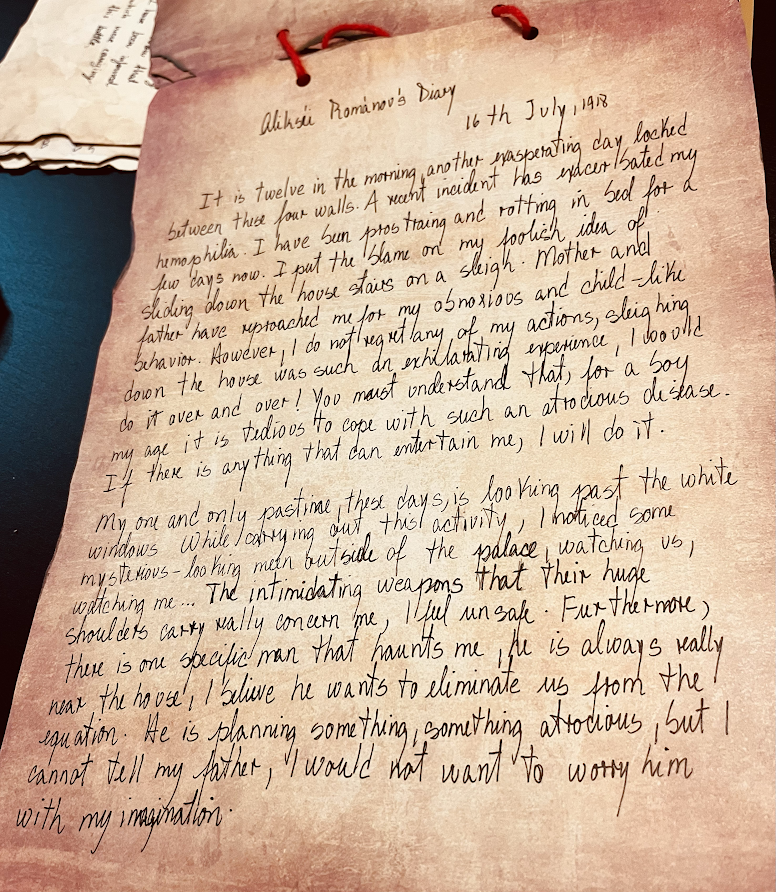 I have been informed
which were carrying
this battle
Alikséi Románov's Diary
16th July, 1918
It is twelve in the morning, another exasperating day locked
between these four walls. A recent incident has exacerbated my
hemophilia. I have been prostraing and rotting in bed for a
few days now. I put the blame on my foolish idea of
sliding down the house stairs on a sleigh. Mother and
father have reproached me for my obnoxious and child-like
behavior. However, I do not regret any of my actions, sleighing
down the house was such an exhilarating experience, I woould
do it over and over! You must understand that, for a boy
my age it is tedious to cope with such an atrocious disease.
If there is anything that can entertain me, I will do it.
My one and only pastime, these days, is looking past the white
windows While carrying out this activity, I noticed some
mysterious-looking men outside of the palace, watching us,
watching me... The intimidating weapons that their huge
shoulders carry really concern me, I feel unsafe. Furthermore,
there is one specific man that haunts me, he is always really
near the house, I believe he wants to eliminate us from the
equation. He is planning something, something atrocious, but I
cannot tell my father, I would not want to worry him
with my imagination.